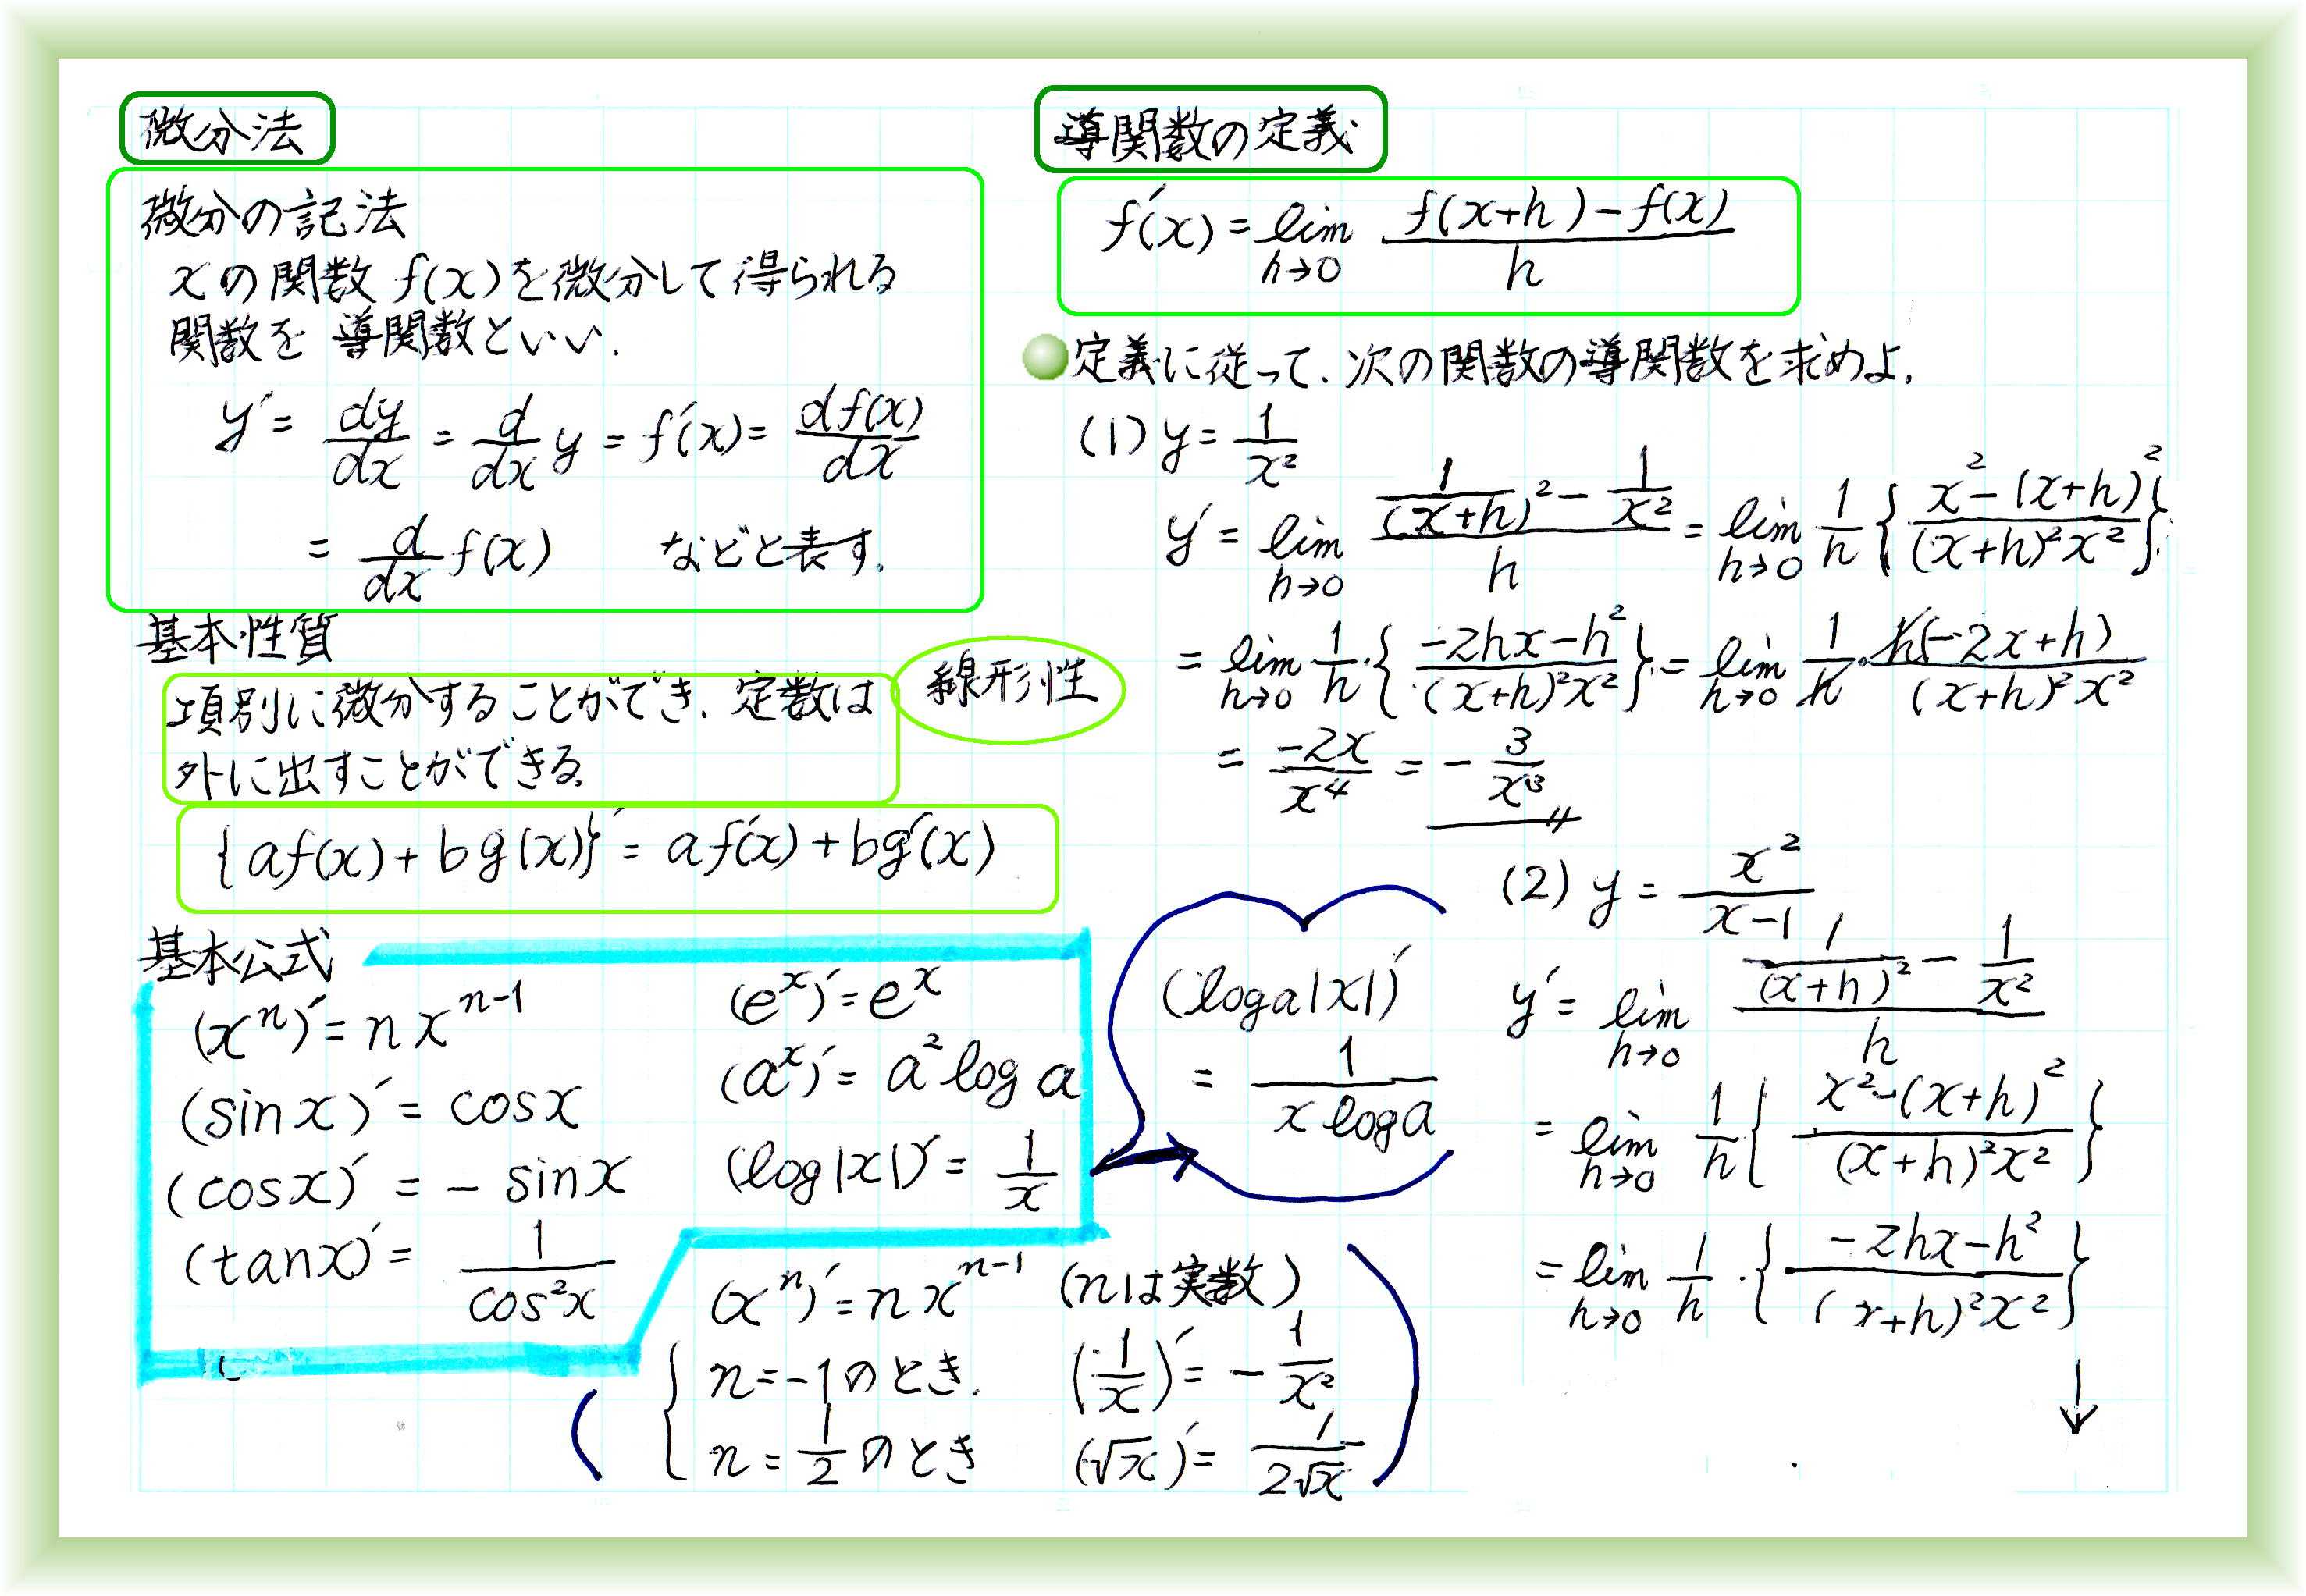 微分法
微分の記法
xの関数 f(x)を微分して得られる
関数を 導関数といい.
y' = dy/dx = d/dx y = f'(x) = df(x)/dx
= d/dx f(x) などと表す.
基本性質
項別に微分することができ、定数は
外に出すことができる.
線形性
{af(x)+bg(x)}' = af'(x)+bg'(x)
基本公式
(x^n)' = nx^{n-1}
(sinx)' = cosx
(cosx)' = - sinx
(tanx)' = 1/cos²x
(e^x)' = e^x
(a^x)' = a² log a
(log|x|)' = 1/x
(loga|x|)'
= 1/(x log a)
(x^n)' = nx^{n-1} (nは実数)
n=-1のとき. (1/x)' = - 1/x²
n=1/2のとき (√x)' = 1/(2√x)
導関数の定義
f'(x) = lim_{h→0} (f(x+h)-f(x))/h
定義に従って、次の関数の導関数を求めよ.
(1) y = 1/x²
y' = lim_{h→0} (1/(x+h)² - 1/x²)/h = lim_{h→0} 1/h {(x²-(x+h)²)/((x+h)²x²)}
= lim_{h→0} 1/h・{(-2hx-h²)/((x+h)²x²)} = lim_{h→0} 1/h・h(-2x+h)/((x+h)²x²)
= -2x/x⁴ = - 3/x³
(2) y = x²/(x-1)
y' = lim_{h→0} (1/(x+h)² - 1/x²)/h
= lim_{h→0} 1/h {(x²-(x+h)²)/((x+h)²x²)}
= lim_{h→0} 1/h・{(-2hx-h²)/((x+h)²x²)}
↓